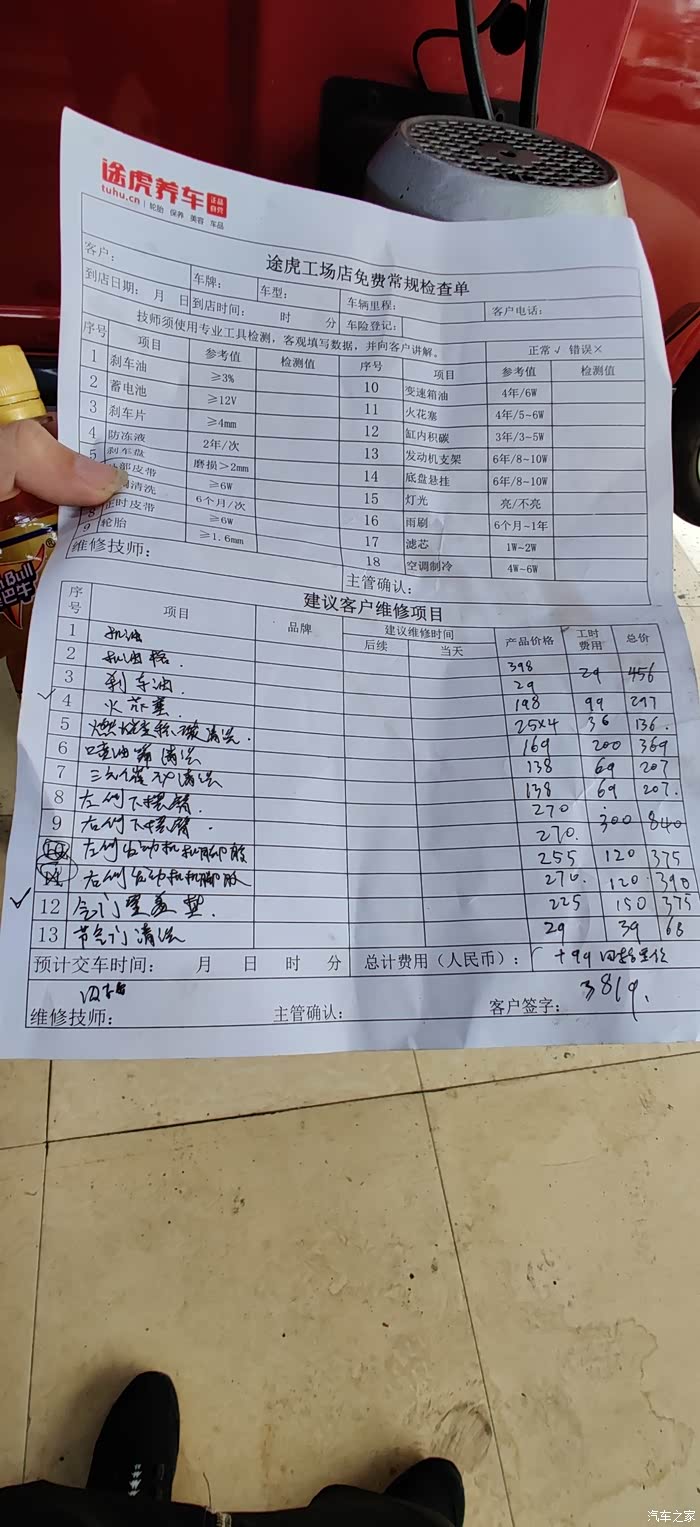 途虎养车 正品自营
tuhu.cn 轮胎 保养 美容 车品
途虎工场店免费常规检查单
客户： 车牌： 车型： 车辆里程： 客户电话：
到店日期： 月 日 到店时间： 时 分 车险登记：
技师须使用专业工具检测，客观填写数据，并向客户讲解。 正常√ 错误×
序号 项目 参考值 检测值 序号 项目 参考值 检测值
1 刹车油 ≥3% 10 变速箱油 4年/6W
2 蓄电池 ≥12V 11 火花塞 4年/5~6W
3 刹车片 ≥4mm 12 缸内积碳 3年/3~5W
4 防冻液 2年/次 13 发动机支架 6年/8~10W
5 刹车盘 磨损>2mm 14 底盘悬挂 6年/8~10W
部皮带 ≥6W 15 灯光 亮/不亮
清洗 6个月/次 16 雨刷 6个月~1年
8 正时皮带 ≥6W 17 滤芯 1W~2W
9 轮胎 ≥1.6mm 18 空调制冷 4W~6W
维修技师： 主管确认：
建议客户维修项目
序号 项目 品牌 建议维修时间 产品价格 工时费用 总价
后续 当天
1 机油 398
2 机油格. 29 29 456
3 刹车油. 198 99 297
√ 4 火花塞. 25×4 36 136.
5 燃烧室积碳清洗. 169 200 369
6 喷油嘴清洗 138 69 207
7 三元催化清洗 138 69 207.
8 左侧下摆臂. 270
9 右侧下摆臂. 270. 300 840
10 左侧发动机机脚胶 255 120 375
11 右侧发动机机脚胶 270. 120 390
√ 12 气门室盖垫. 225 150 375
13 节气门清洗 29 39 68
预计交车时间： 月 日 时 分 总计费用（人民币）： +99 四轮定位
维修技师： 主管确认： 客户签字： 3819.
汽车之家